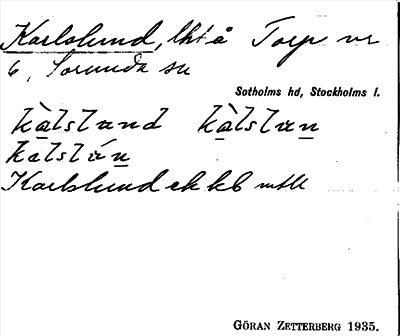 Karlslund, lht å Torp nr
6, Sorunda sn
Sotholms hd, Stockholms l.
kàlslund kàlslun
kalslún
Karlslund ek kb mtl
GÖRAN ZETTERBERG 1935.